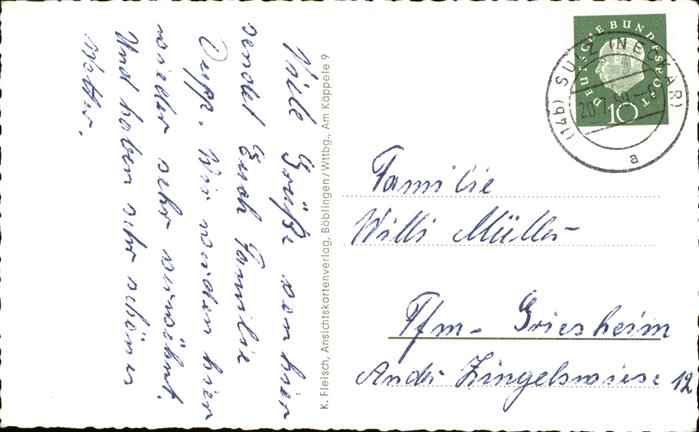 Viele Grüße von hier
sendet Euch Familie
Wir werden hier
wieder sehr verwöhnt.
Und haben sehr schönes
Wetter.
K. Fleisch, Ansichtskartenverlag, Böblingen/Wttbg., Am Käppele 9
DEUTSCHE BUNDESPOST
10
(14b) SULZ (NECKAR)
20.7.60.-6
a
Familie
Willi Müller
Ffm- Griesheim
Zingelswiese 12